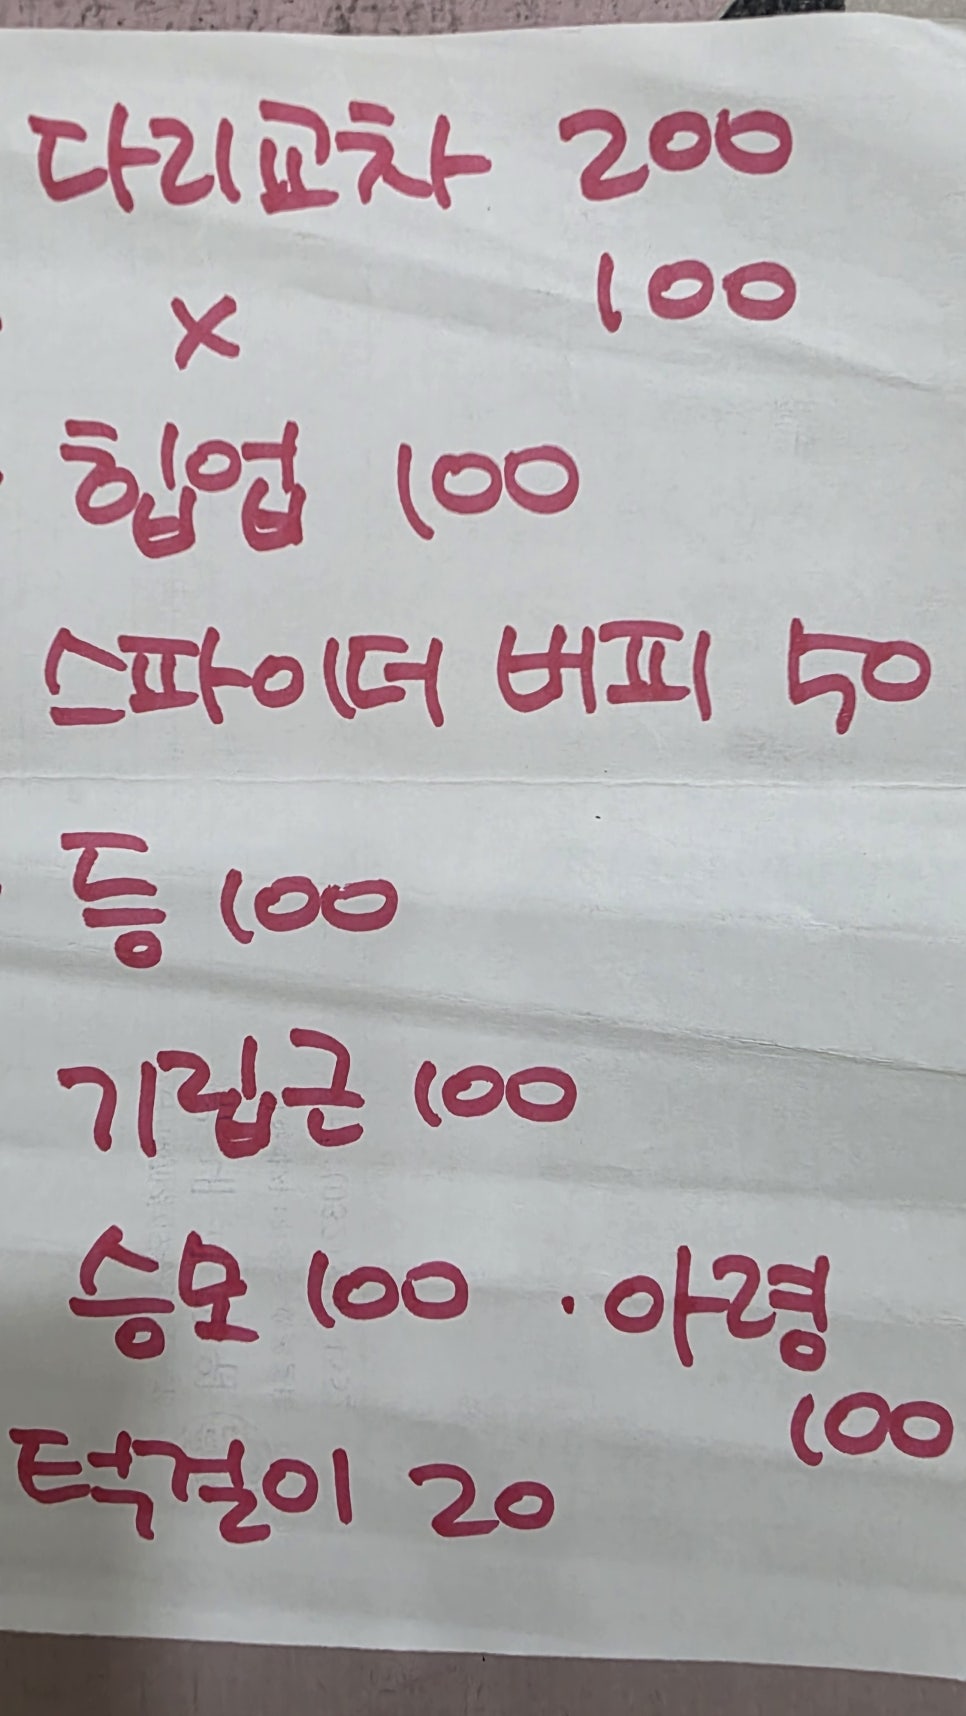 다리교차 200
100
x
힙업 100
스파이더 버피 50
등 100
기립근 100
승모 100 · 아령
100
턱걸이 20